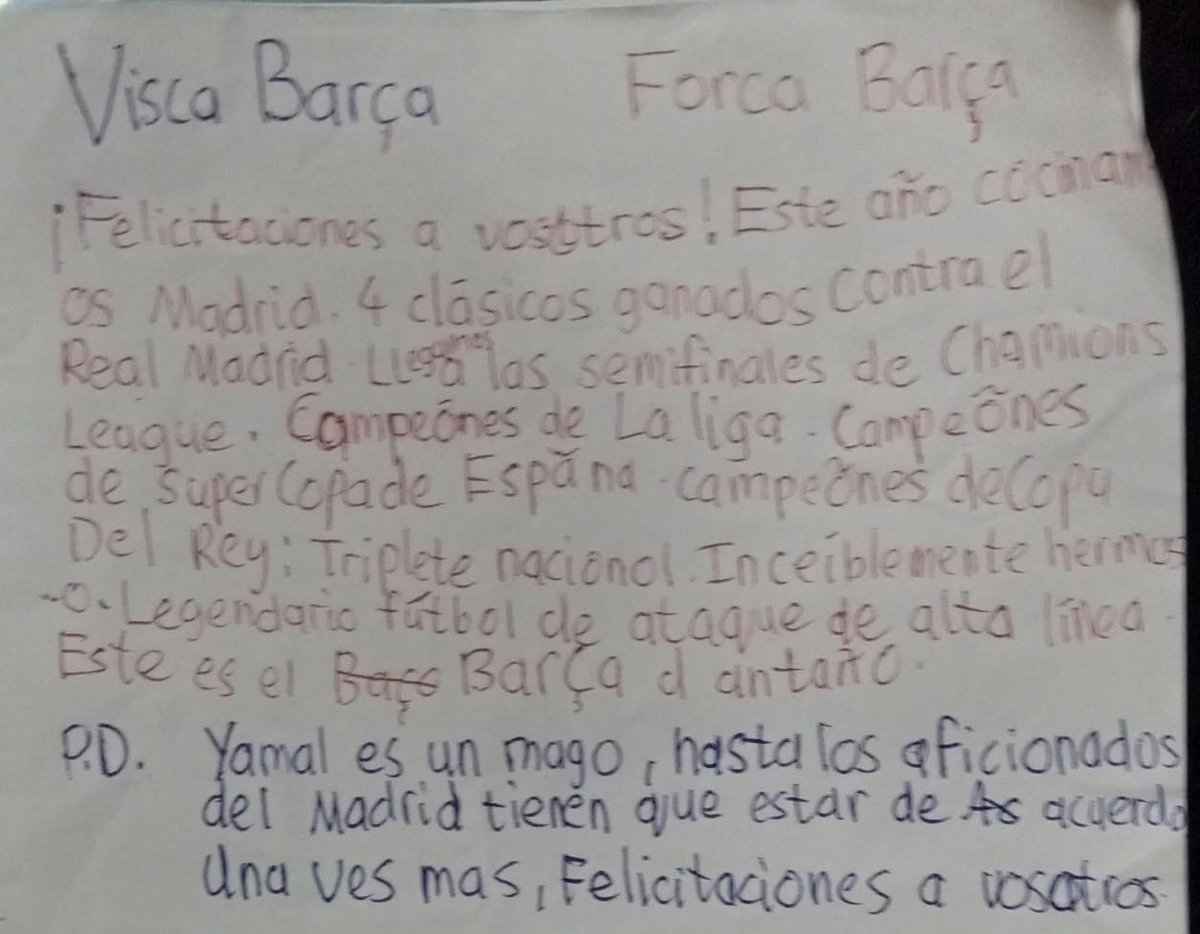 Visca Barça Forca Barça
¡Felicitaciones a vosttros! Este año cocinam
os Madrid. 4 clásicos ganados contra el
Real Madrid. Llegamos a las semifinales de Chamions
League. Campeónes de La liga. Campeõnes
de super Copa de Espăna. campeŏnes de Copa
Del Rey: Triplete nacional. Inceíblemente hermos
-o. Legendario fútbol de ataque de alta línea.
Este es el Barça d antaño.
P.D. Yamal es un mago, hasta los aficionados
del Madrid tienén que estar de acuerdo
Una ves mas, Felicitaciones a vosotros.